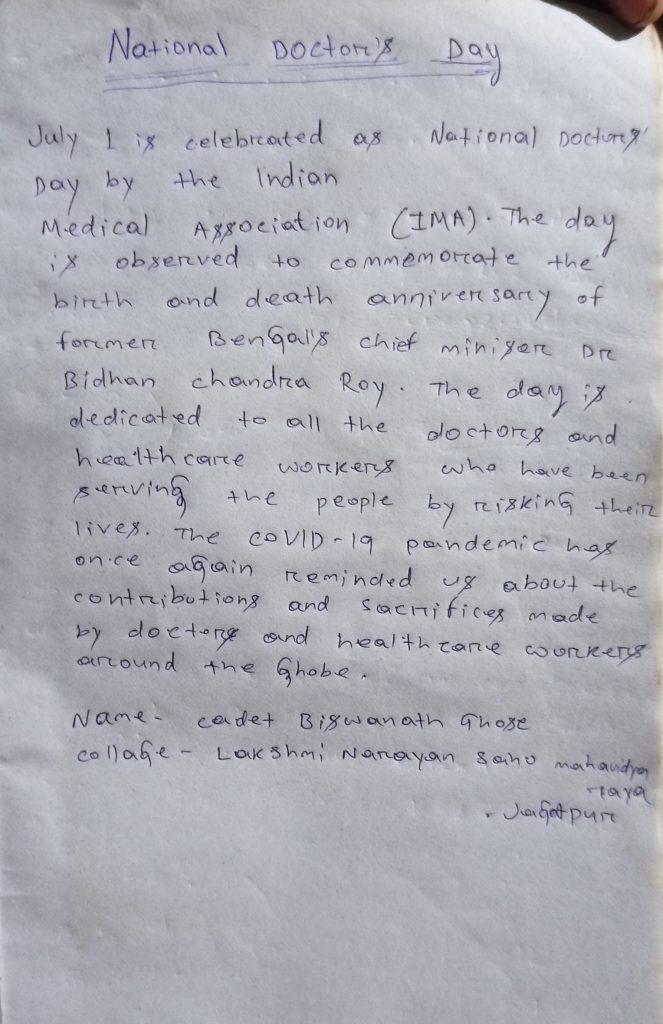 National Doctor's Day
July 1 is celebrated as National Doctors'
Day by the Indian
Medical Association (IMA). The day
is observed to commemorate the
birth and death anniversary of
former Bengal's chief miniser Dr
Bidhan chandra Roy. The day is
dedicated to all the doctors and
healthcare workers who have been
serving the people by risking their
lives. The COVID-19 pandemic has
once again reminded us about the
contributions and sacrifices made
by doctors and healthcare workers
around the Ghobe.
Name - cadet Biswanath Ghose
collage - Lakshmi Narayan Sahu mahavidya
raya
- Jagatpur